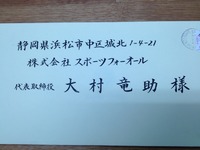 静岡県浜松市中区城北1-4-21
株式会社 スポーツフォーオール
代表取締役 大村竜助様